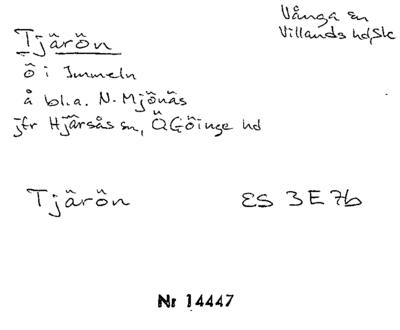 Vånga sn
Villands hd, Sk
Tjärön
ö i Immeln
å bl.a. N. Mjönäs
jfr Hjärsås sn, Ö Göinge hd
Tjärön ES 3E7b
Nr 14447